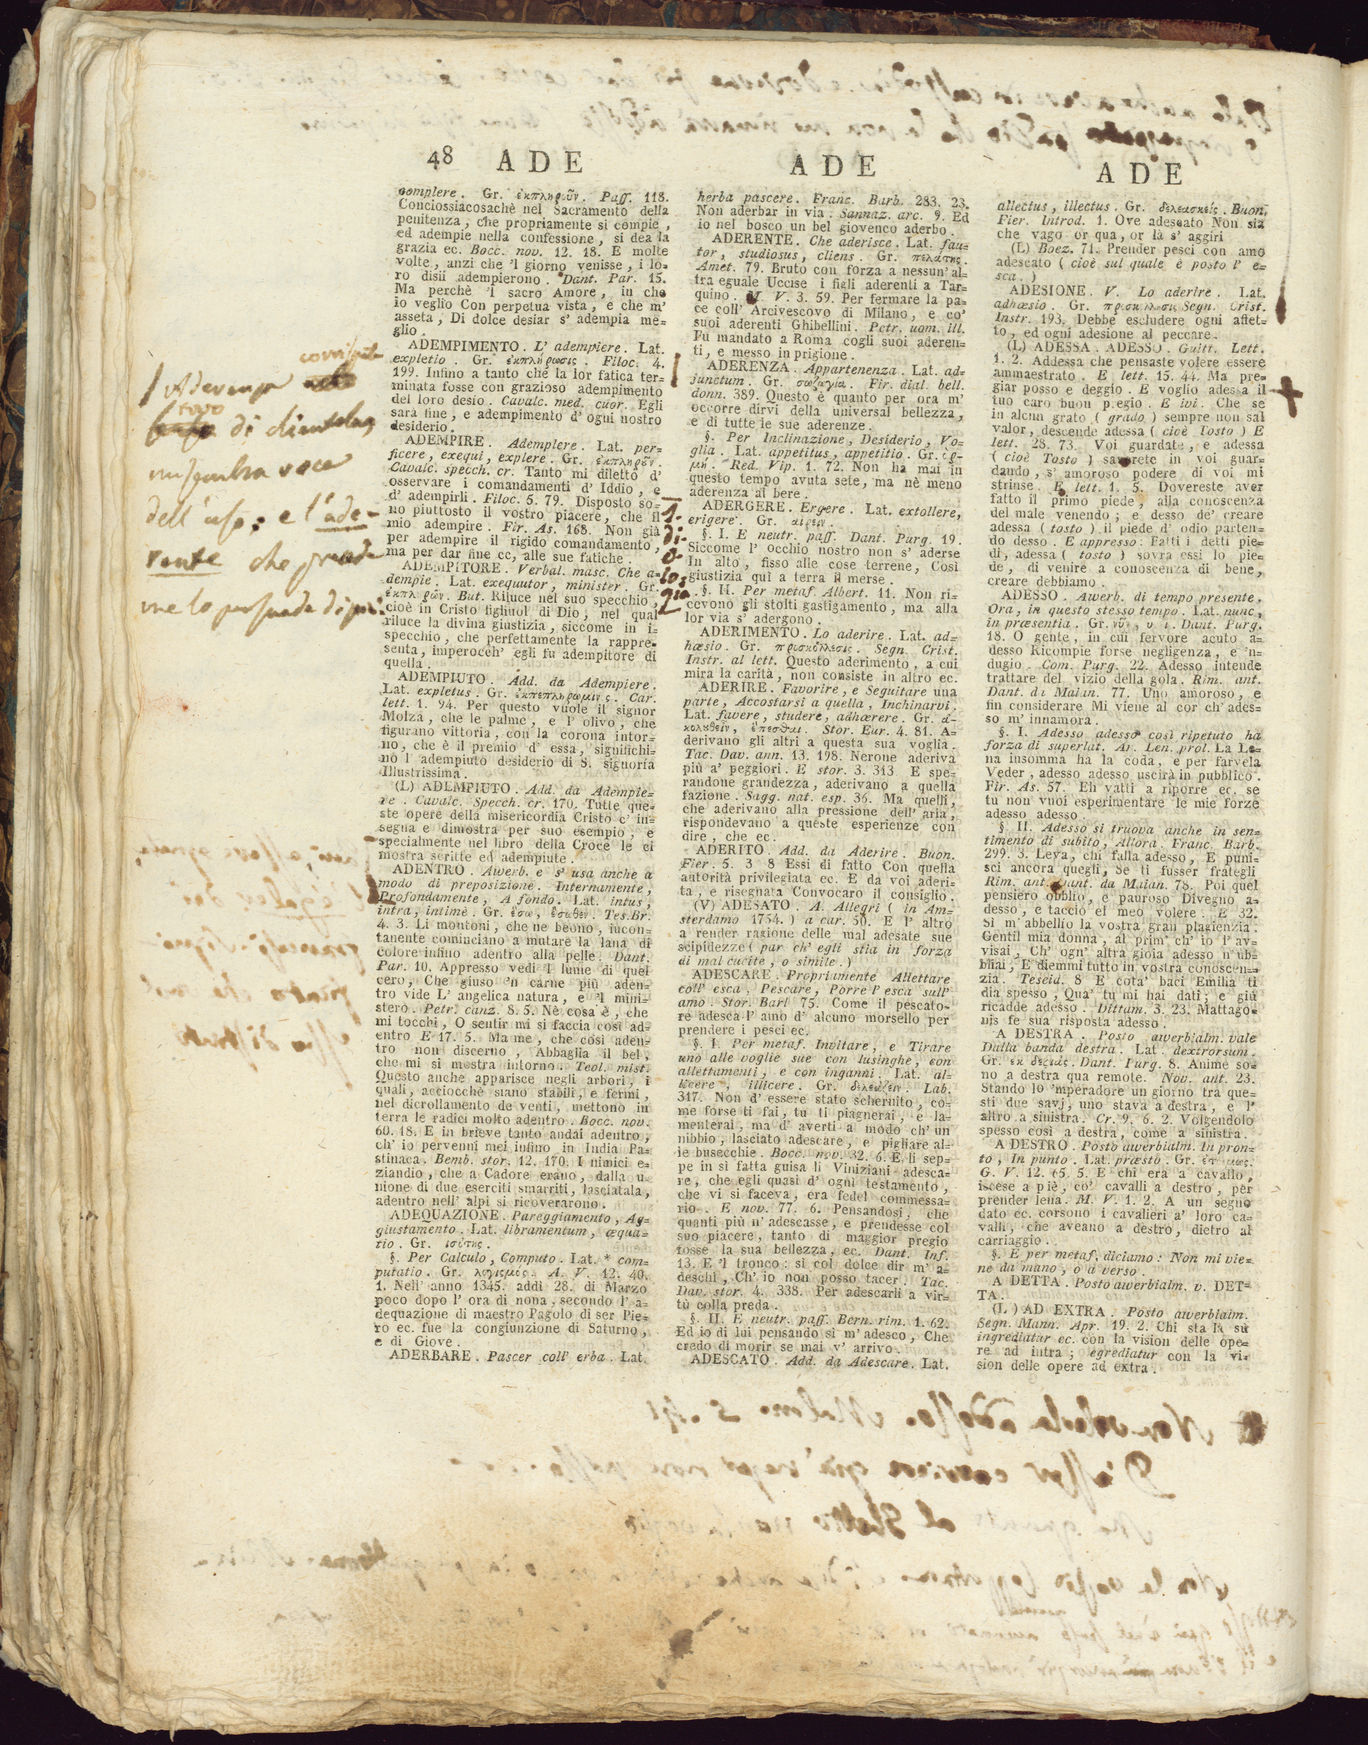 48 ADE ADE ADE
complere. Gr. ἐκπληροῦν. Pass. 118.
Conciossiacosachè nel Sacramento della
penitenza, che propriamente si compie,
ed adempie nella confessione, si dea la
grazia ec. Bocc. nov. 12. 18. E molte
volte, anzi che 'l giorno venisse, i lo=
ro disii adempierono. Dant. Par. 15.
Ma perchè 'l sacro Amore, in che
io veglio Con perpetua vista, e che m'
asseta, Di dolce desiar s' adempia me=
glio.
ADEMPIMENTO. L' adempiere. Lat.
expletio. Gr. ἐκπλήρωσις. Filoc. 4.
199. Infino a tanto che la lor fatica ter=
minata fosse con grazioso adempimento
del loro desio. Cavalc. med. cuor. Egli
sarà fine, e adempimento d' ogni nostro
desiderio.
ADEMPIRE. Ademplere. Lat. per=
ficere, exequi, explere. Gr. ἐκπληροῦν.
Cavalc. specch. cr. Tanto mi dilettò d'
osservare i comandamenti d' Iddio, e
d' adempirli. Filoc. 5. 79. Disposto so=
no piuttosto il vostro piacere, che il
mio adempire. Fir. As. 168. Non già
per adempire il rigido comandamento,
ma per dar fine ec, alle sue fatiche.
ADEMPITORE. Verbal. masc. Che a=
dempie. Lat. exequutor, minister. Gr.
But. Riluce nel suo specchio,
cioè in Cristo figliuol di Dio, nel qual
riluce la divina giustizia, siccome in i=
specchio, che perfettamente la rappre=
senta, imperocch' egli fu adempitore di
quella.
ADEMPIUTO. Add. da Adempiere.
Lat. expletus. Gr. Car.
lett. 1. 94. Per questo vuole il signor
Molza, che le palme, e l' olivo, che
figurano vittoria, con la corona intor=
no, che è il premio d' essa, significhi=
no l' adempiuto desiderio di S. signoria
Illustrissima.
(L) ADEMPIUTO. Add. da Adempie=
re. Cavalc. Specch. cr. 170. Tutte que=
ste opere della misericordia Cristo c' in=
segna e dimostra per suo esempio, e
specialmente nel libro della Croce le ci
mostra scritte ed adempiute.
ADENTRO. Avverb. e s' usa anche a
modo di preposizione. Internamente,
Profondamente, A fondo. Lat. intus,
intra, intimè. Gr. ἔσω, ἔσωθεν. Tes. Br.
4. 3. Li montoni, che ne beono, incon=
tanente cominciano a mutare la lana di
colore infino adentro alla pelle. Dant.
Par. 10. Appresso vedi 'l lume di quel
cero, Che giuso 'n carne più aden=
tro vide L' angelica natura, e 'l mini=
stero. Petr. canz. 8. 5. Nè cosa è, che
mi tocchi, O sentir mi si faccia così ad=
entro E 17. 5. Ma me, che così aden=
tro non discerno, Abbaglia il bel,
che mi si mostra intorno. Teol. mist.
Questo anche apparisce negli arbori, i
quali, acciocchè siano stabili, e fermi,
nel dicrollamento de venti, mettono in
terra le radici molto adentro. Bocc. nov.
60. 18. E in brieve tanto andai adentro,
ch' io pervenni mei infino in India Pa=
stinaca. Bemb. stor. 12. 170. I nimici e=
ziandio, che a Cadore erano, dalla u=
nione di due eserciti smarriti, lasciatala,
adentro nell' alpi si ricoverarono.
ADEQUAZIONE. Pareggiamento, Ag=
giustamento. Lat. libramentum, æqua=
tio. Gr. ἰσότης.
§. Per Calculo, Computo. Lat. * com=
putatio. Gr. λογισμός. A. V. 12. 40.
1. Nell' anno 1345. addì 28. di Marzo
poco dopo l' ora di nona, secondo l' a=
dequazione di maestro Pagolo di ser Pie=
ro ec. fue la congiunzione di Saturno,
e di Giove.
ADERBARE. Pascer coll' erba. Lat.
herba pascere. Franc. Barb. 283. 23.
Non aderbar in via. Sannaz. arc. 9. Ed
io nel bosco un bel giovenco aderbo.
ADERENTE. Che aderisce. Lat. fau=
tor, studiosus, cliens. Gr. πελάτης.
Amet. 79. Bruto con forza a nessun' al=
tra eguale Uccise i figli aderenti a Tar=
quino. M. V. 3. 59. Per fermare la pa=
ce coll' Arcivescovo di Milano, e co'
suoi aderenti Ghibellini. Petr. uom. ill.
Fu mandato a Roma cogli suoi aderen=
ti, e messo in prigione.
ADERENZA. Appartenenza. Lat. ad=
junctum. Gr. συζυγία. Fir. dial. bell.
donn. 389. Questo è quanto per ora m'
occorre dirvi della universal bellezza,
e di tutte le sue aderenze.
§. Per Inclinazione, Desiderio, Vo=
glia. Lat. appetitus, appetitio. Gr. ὁρ=
μή. Red. Vip. 1. 72. Non ha mai in
questo tempo avuta sete, ma nè meno
aderenza al bere.
ADERGERE. Ergere. Lat. extollere,
erigere. Gr. αἴρειν.
§. I. E neutr. pass. Dant. Purg. 19.
Siccome l' occhio nostro non s' aderse
In alto, fisso alle cose terrene, Così
giustizia qui a terra il merse.
§. II. Per metaf. Albert. 11. Non ri=
cevono gli stolti gastigamento, ma alla
lor via s' adergono.
ADERIMENTO. Lo aderire. Lat. ad=
hæsio. Gr. προσκόλλησις. Segn. Crist.
Instr. al lett. Questo aderimento, a cui
mira la carità, non consiste in altro ec.
ADERIRE. Favorire, e Seguitare una
parte, Accostarsi a quella, Inchinarvi.
Lat. favere, studere, adhærere. Gr. ἀ=
κολουθεῖν, ἕπεσθαι. Stor. Eur. 4. 81. A=
derivano gli altri a questa sua voglia.
Tac. Dav. ann. 13. 198. Nerone aderiva
più a' peggiori. E stor. 3. 313 E spe=
randone grandezza, aderivano a quella
fazione. Sagg. nat. esp. 36. Ma quelli,
che aderivano alla pressione dell' aria,
rispondevano a queste esperienze con
dire, che ec.
ADERITO. Add. da Aderire. Buon.
Fier. 5. 3 8 Essi di fatto Con quella
autorità privilegiata ec. E da voi aderi=
ta, e risegnata Convocaro il consiglio.
(V) ADESATO. A. Allegri (in Am=
sterdamo 1754.) a car. 50. E l' altro
a render ragione delle mal adesate sue
scipidezze (par ch' egli stia in forza
di mal cucite, o simile.)
ADESCARE. Propriamente Allettare
coll' esca, Pescare, Porre l' esca sull'
amo. Stor. Barl 75. Come il pescato=
re adesca l' amo d' alcuno morsello per
prendere i pesci ec.
§. I. Per metaf. Invitare, e Tirare
uno alle voglie sue con lusinghe, con
allettamenti, e con inganni. Lat. al=
licere, illicere. Gr. δελεάζειν. Lab.
317. Non d' essere stato schernito, co=
me forse ti fai, tu ti piagnerai, e la=
menterai, ma d' averti a modo ch' un
nibbio, lasciato adescare, e pigliare al=
le busecchie. Bocc. nov. 32. 6. E lì sep=
pe in sì fatta guisa li Viniziani adesca=
re, che egli quasi d' ogni testamento,
che vi si faceva, era fedel commessa=
rio. E nov. 77. 6. Pensandosi, che
quanti più n' adescasse, e prendesse col
suo piacere, tanto di maggior pregio
fosse la sua bellezza, ec. Dant. Inf.
13. E 'l tronco: si col dolce dir m' a=
deschi, Ch' io non posso tacer. Tac.
Dav. stor. 4. 338. Per adescarli a vir=
tù colla preda.
§. II. E neutr. pass. Bern. rim. 1. 62.
Ed io di lui pensando sì m' adesco, Che
credo di morir se mai v' arrivo.
ADESCATO. Add. da Adescare. Lat.
allectus, illectus. Gr. δελεασθείς. Buon.
Fier. Introd. 1. Ove adescato Non sia
che vago or qua, or là s' aggiri
(L) Boez. 71. Prender pesci con amo
adescato (cioè sul quale è posto l' e=
sca.)
ADESIONE. V. Lo aderire. Lat.
adhæsio. Gr. προσκόλλησις Segn. Crist.
Instr. 193. Debbe escludere ogni affet=
to, ed ogni adesione al peccare.
(L) ADESSA. ADESSO. Guitt. Lett.
1. 2. Addessa che pensaste volere essere
ammaestrato. E lett. 15. 44. Ma pre=
giar posso e deggio, E voglio adessa il
tuo caro buon pregio E ivi. Che se
in alcun grato (grado) sempre non sal
valor, descende adessa (cioè Tosto) E
lett. 28. 73. Voi guardate, e adessa
(cioè Tosto) savorete in voi guar=
dando, s' amoroso podere di voi mi
strinse. E lett. 1. 5. Dovereste aver
fatto il primo piede, alla conoscenza
del male venendo; e desso de' creare
adessa (tosto) il piede d' odio parten=
do desso. E appresso: Fatti i detti pie=
di, adessa (tosto) sovra essi lo pie=
de, di venire a conoscenza di bene,
creare debbiamo.
ADESSO. Avverb. di tempo presente.
Ora, in questo stesso tempo. Lat. nunc,
in præsentia. Gr. νῦν. Dant. Purg.
18. O gente, in cui fervore acuto a=
desso Ricompie forse negligenza, e 'n=
dugio. Com. Purg. 22. Adesso intende
trattare del vizio della gola. Rim. ant.
Dant. da Maian. 77. Uno amoroso, e
fin considerare Mi viene al cor ch' ades=
so m' innamora.
§. I. Adesso adesso così ripetuto ha
forza di superlat. Ar. Len. prol. La Le=
na insomma ha la coda, e per farvela
Veder, adesso adesso uscirà in pubblico.
Fir. As. 57. Eh vatti a riporre ec. se
tu non vuoi esperimentare le mie forze
adesso adesso.
§. II. Adesso si truova anche in sen=
timento di subito, Allora. Franc. Barb.
299. 3. Leva, chi falla adesso, E puni=
sci ancora quegli, Se ti fusser frategli
Rim. ant. Dant. da Maian. 78. Poi quel
pensiero obblio, e pauroso Divegno a=
desso, e taccio el meo volere. E 32.
Si m' abbellio la vostra gran plagienzia.
Gentil mia donna, al prim' ch' io l' av=
visai, Ch' ogn' altra gioia adesso n' ub=
bliai, E diemmi tutto in vostra conoscen=
zia. Teseid. 8 E cota' baci Emilia ti
dia spesso, Qua' tu mi hai dati; e giù
ricadde adesso. Dittam. 3. 23. Mattago=
nis fe sua risposta adesso.
A DESTRA. Posto avverbialm. vale
Dalla banda destra. Lat. dextrorsum.
Gr. ἐκ δεξιᾶς. Dant. Purg. 8. Anime so=
no a destra qua remote. Nov. ant. 23.
Stando lo 'mperadore un giorno tra que=
sti due savj, uno stava a destra, e l'
altro a sinistra. Cr. 9. 6. 2. Volgendolo
spesso così a destra, come a sinistra.
A DESTRO. Posto avverbialm. In pron=
to, In punto. Lat. præsto. Gr.
G. V. 12. 65. 5. E chi era a cavallo,
iscese a piè, co' cavalli a destro, per
prender lena. M. V. 1. 2. A un segno
dato ec. corsono i cavalieri a' loro ca=
valli, che aveano a destro, dietro al
carriaggio.
§. E per metaf. diciamo: Non mi vie=
ne da mano, o a verso.
A DETTA. Posto avverbialm. v. DET=
TA.
(L) AD EXTRA. Posto avverbialm.
Segn. Mann. Apr. 19. 2. Chi sta là su
ingrediatur ec. con la vision delle ope=
re ad intra; egrediatur con la vi=
sion delle opere ad extra.
Aderenza
di clientelag
mi sembra voce
dell' uso; e l' ade-
rente che precede
me lo persuade di più.